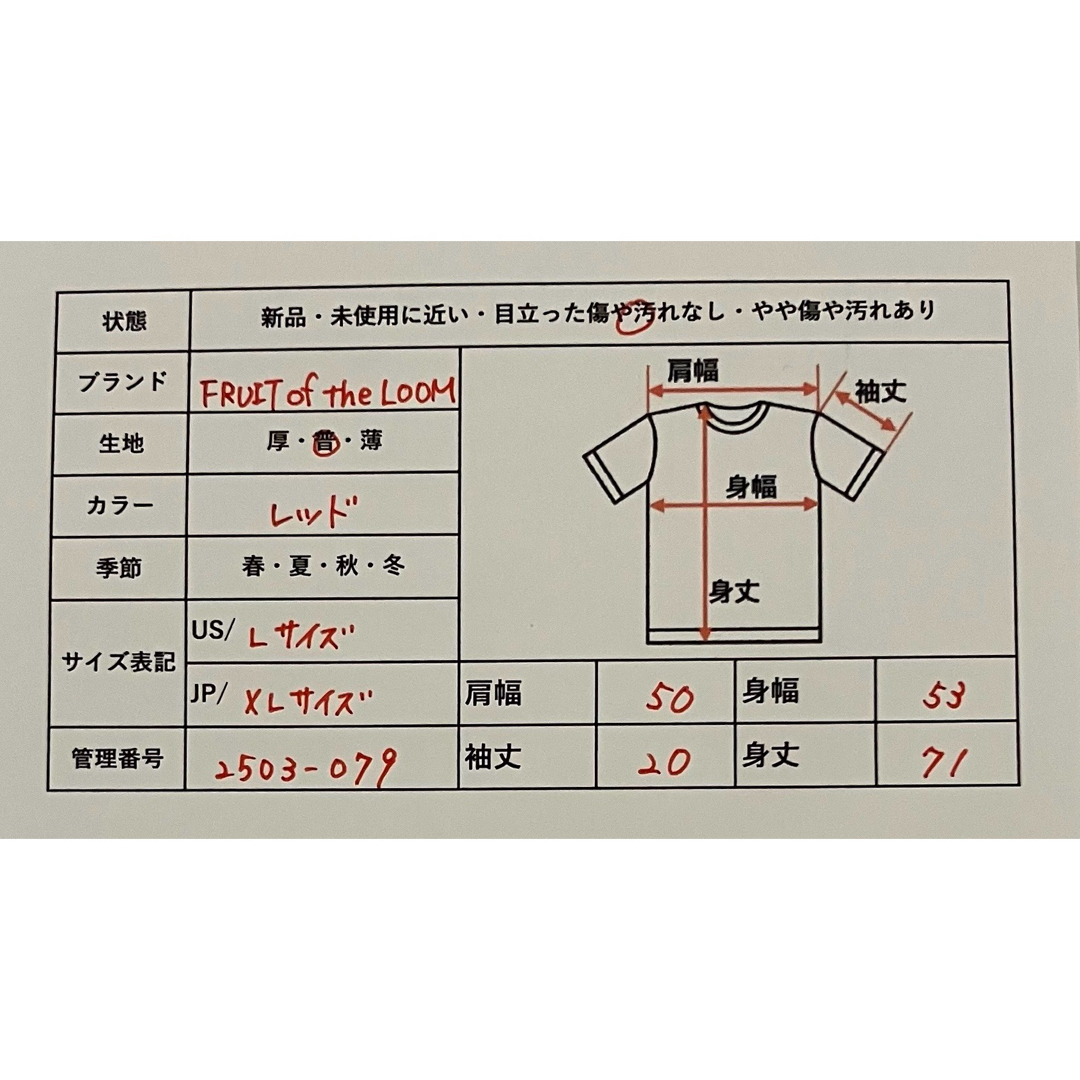 状態 新品・未使用に近い・目立った傷や汚れなし・やや傷や汚れあり
ブランド FRUIT of the LOOM
生地 厚・普・薄
カラー レッド
季節 春・夏・秋・冬
サイズ表記 US/ Lサイズ
JP/ XLサイズ
管理番号 2503-079
肩幅
袖丈
身幅
身丈
肩幅 50 身幅 53
袖丈 20 身丈 71